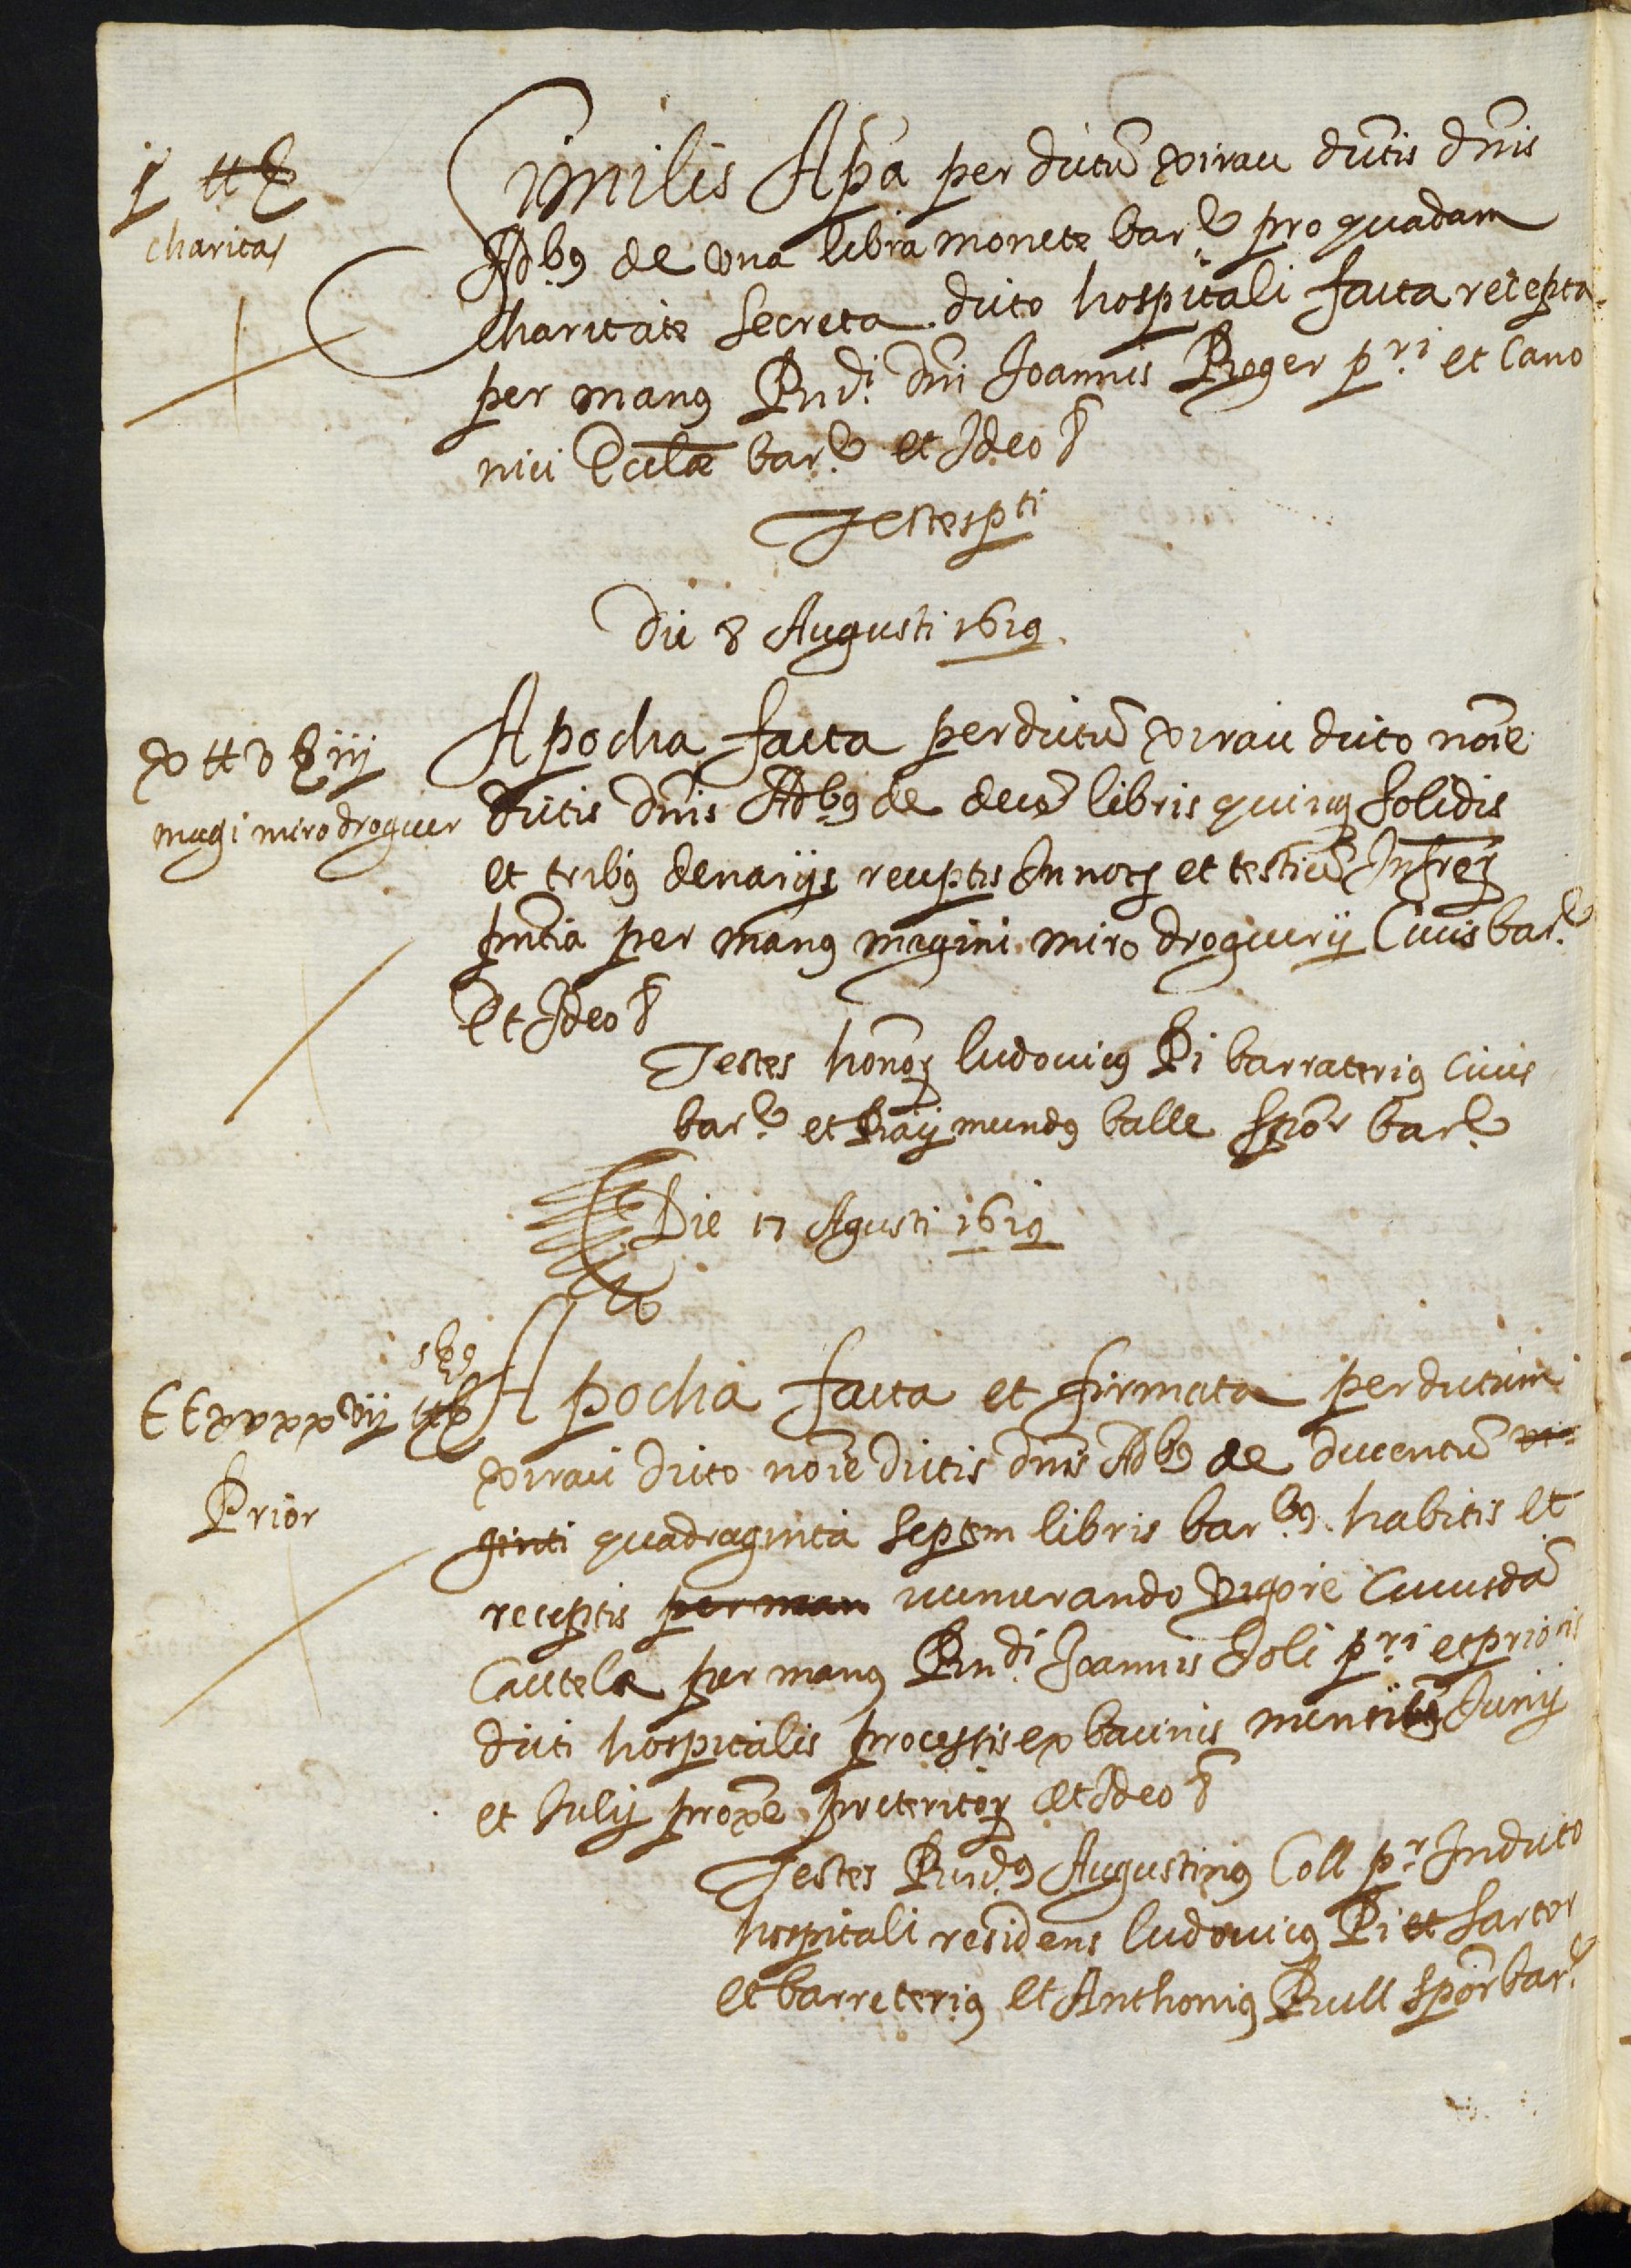 j ℔
charitas
Similis Apª per dictũ xirau dictis dñis
Adbꝰ de vna libra monete barᵉ pro quadam
charitate secreta dicto hospitali facta recepta
per manꝰ Rndi dñi Joannis Roger pri et Cano
nici Ecclæ barᵉ et Ideo &
Testes pti
Die 8 Augusti 1619.
x ℔ v ß iij
magi miro droguer
Apocha facta per dictũ xirau dicto noie
dictis dñis Adbꝰ de decẽ libris quinqꝫ solidis
et tribꝰ denarijs receptis In nots et testiũ Infrꝫ
pñtia per manꝰ magini miro droguerij Ciuis barᵉ
Et Ideo &
Testes honorꝫ ludouicꝰ Pi barraterius ciuis
barᵉ et Raijmundꝰ balle scpor barᵉ
Die 17 Agusti 1619
CCxxxxvij ℔
Prior
Apocha facta et firmata per dictum
xirau dicto noie dictis dñis Adbꝰ de ducentũ vi
ginti quadraginta septem libris barbꝰ habitis et
receptis per man numerando vigore Cuiusdã
Cautela per manꝰ Rndi Joannis Soli pri et prioris
dicti hospitalis processis ex bacinis mensibꝰ Junij
et Julij proxe preteritorꝫ et Ideo &
Testes Rndꝰ Augustinꝰ Coll pr In dicto
hospitali residens ludouicꝰ Pi et sartor
et barreteriꝰ et Anthoniꝰ Rull scpor barᵉ